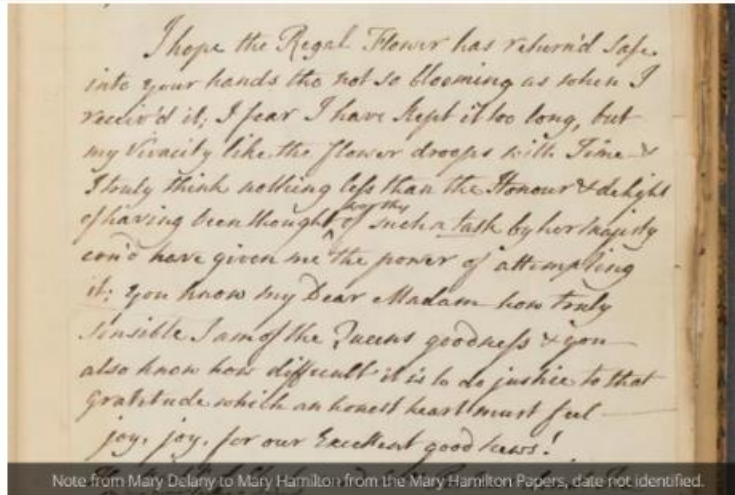 I hope the Regal Flower has return'd safe
into your hands tho not so blooming as when I
receiv'd it; I fear I have kept it too long, but
my Vivacity like the flower droops with Time &
I truly think nothing less than the Honour & delight
of having been thought worthy of such a task by her Majesty
cou'd have given me the power of attempting
it; you know my Dear Madam how truly
sensible I am of the Queens goodness & you
also know how difficult it is to do justice to that
gratitude which an honest heart must feel
joy, joy, for our Excellent good news!
Note from Mary Delany to Mary Hamilton from the Mary Hamilton Papers, date not identified.